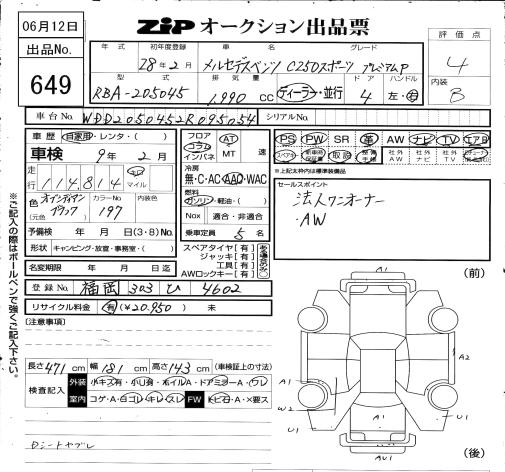 06月12日
ZIP オークション出品票
出品No.
649
評価点
4
内装
B
年式 初年度登録 車名 グレード
28年2月 メルセデスベンツ C250スポーツ プレミアムP
型式 排気量 ドア ハンドル
RBA-205045 1,990 cc ディーラー・並行 4 左・右
車台No. WDD2050452R095054 シリアルNo.
車歴 自家用・レンタ・( )
車検 9年2月
走行 114,814 キロ マイル
色(元色) オブシディアンブラック カラーNo. 197 内装色
予備検 年 月 日 (3・8)No.
形状 キャンピング・放置・事務室・( )
名変期限 年 月 日迄
登録No. 福岡 303 ひ 4602
リサイクル料金 有(¥20,950) 未
フロア コラム インパネ AT MT 速
冷房 無・C・AC・AAC・WAC
燃料 ガソリン・軽油・( )
Nox 適合・非適合
乗車定員 5名
スペアタイヤ[有]
ジャッキ[有]
工具[有]
AWロックキー[有]
ある場合のみ○
PS PW SR 革 AW ナビ TV エアB
スペアキー 取説 社外AW 社外ナビ 社外TV
※上記太枠内は標準装備品
セールスポイント
法人ワンオーナー
・AW
[注意事項]
長さ 471 cm 幅 181 cm 高さ 143 cm (車検証上の寸法)
検査記入 外装 小キズ有・小凹有・ホイルA・ドアミラーA・ウレ
室内 コゲ・A・白コゲ・キレ・スレ FW トビ石・A・X要ス
Dシートヤブレ
※ご記入の際はボールペンで強くご記入下さい。
(前)
A1
A2
A1
W2
U1
U1
AU1
(後)